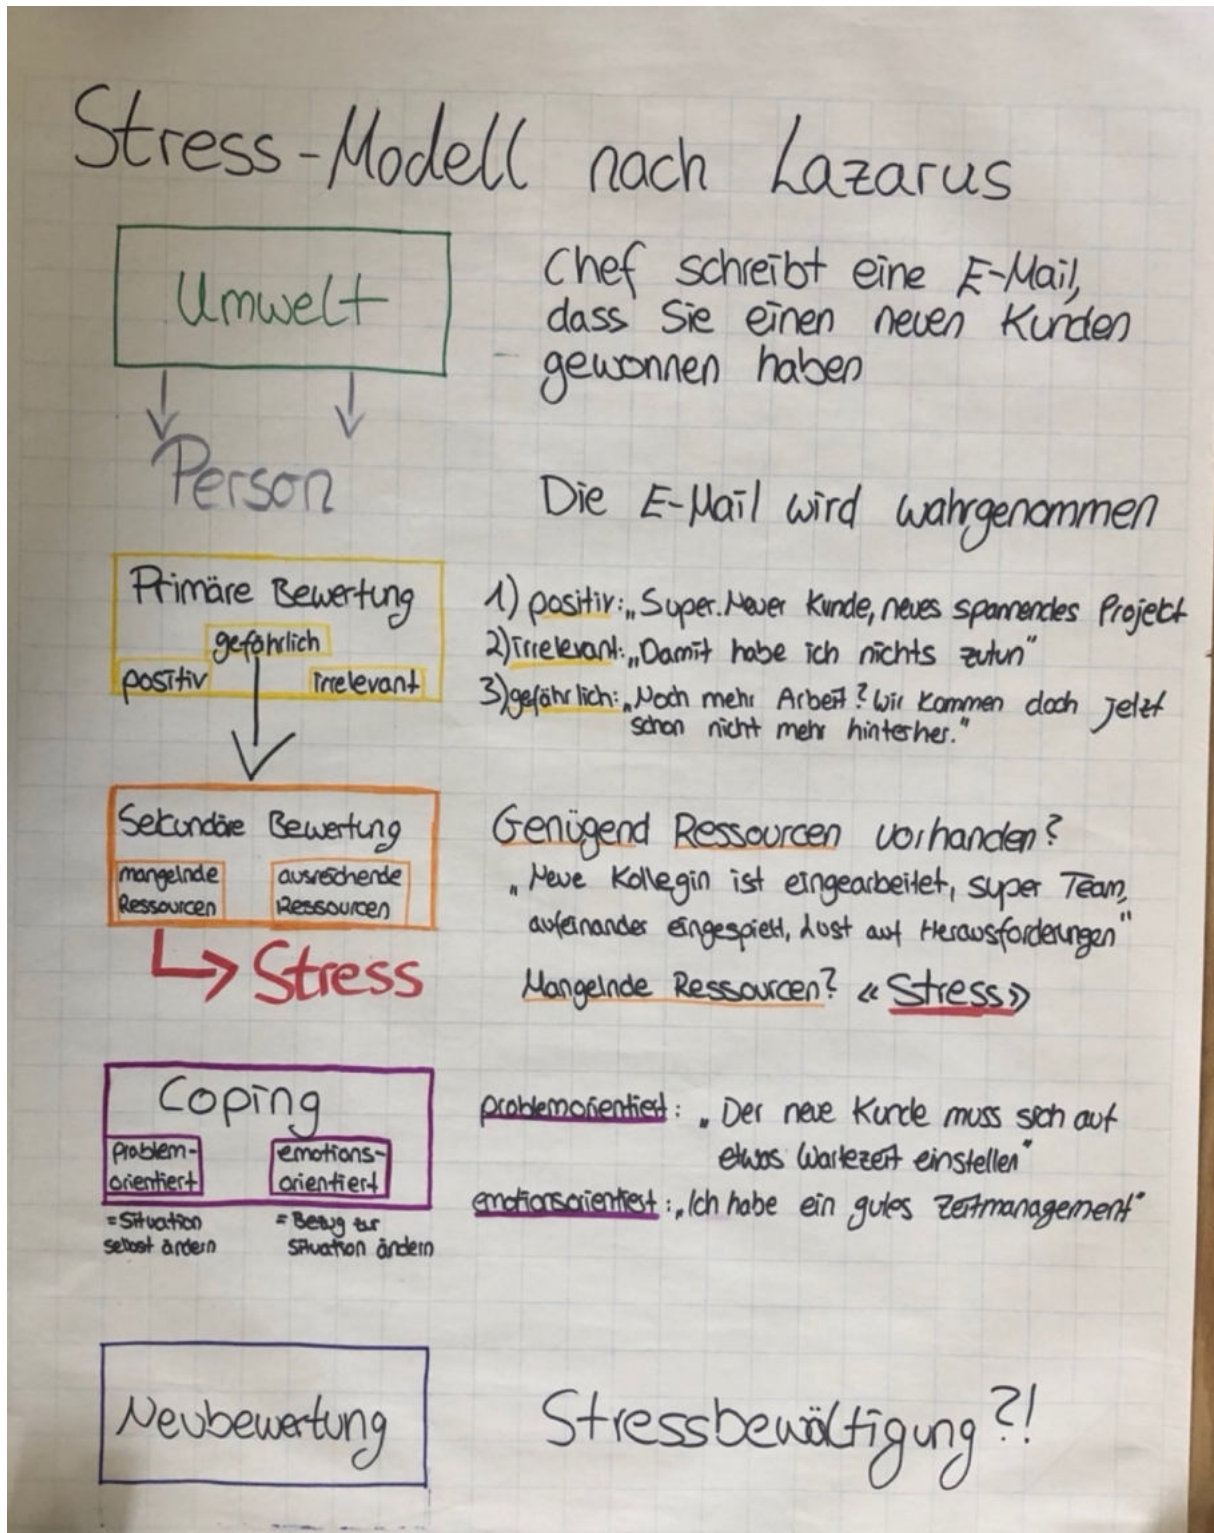 Stress-Modell nach Lazarus
Umwelt
Chef schreibt eine E-Mail,
dass Sie einen neuen Kunden
gewonnen haben
Person
Die E-Mail wird wahrgenommen
Primäre Bewertung
gefährlich
positiv
irrelevant
1) positiv: „Super. Neuer Kunde, neues spannendes Projekt
2) irrelevant: „Damit habe ich nichts zutun"
3) gefährlich: „Noch mehr Arbeit? Wir kommen doch jetzt
schon nicht mehr hinterher."
Sekundäre Bewertung
mangelnde
Ressourcen
ausreichende
Ressourcen
Stress
Genügend Ressourcen vorhanden?
„Neue Kollegin ist eingearbeitet, super Team,
aufeinander eingespielt, Lust auf Herausforderungen"
Mangelnde Ressourcen? «Stress»
Coping
problem-
orientiert
emotions-
orientiert
= Situation
selbst ändern
= Bezug zur
Situation ändern
problemorientiert: „Der neue Kunde muss sich auf
etwas Wartezeit einstellen"
emotionsorientiert: „Ich habe ein gutes Zeitmanagement"
Neubewertung
Stressbewältigung?!